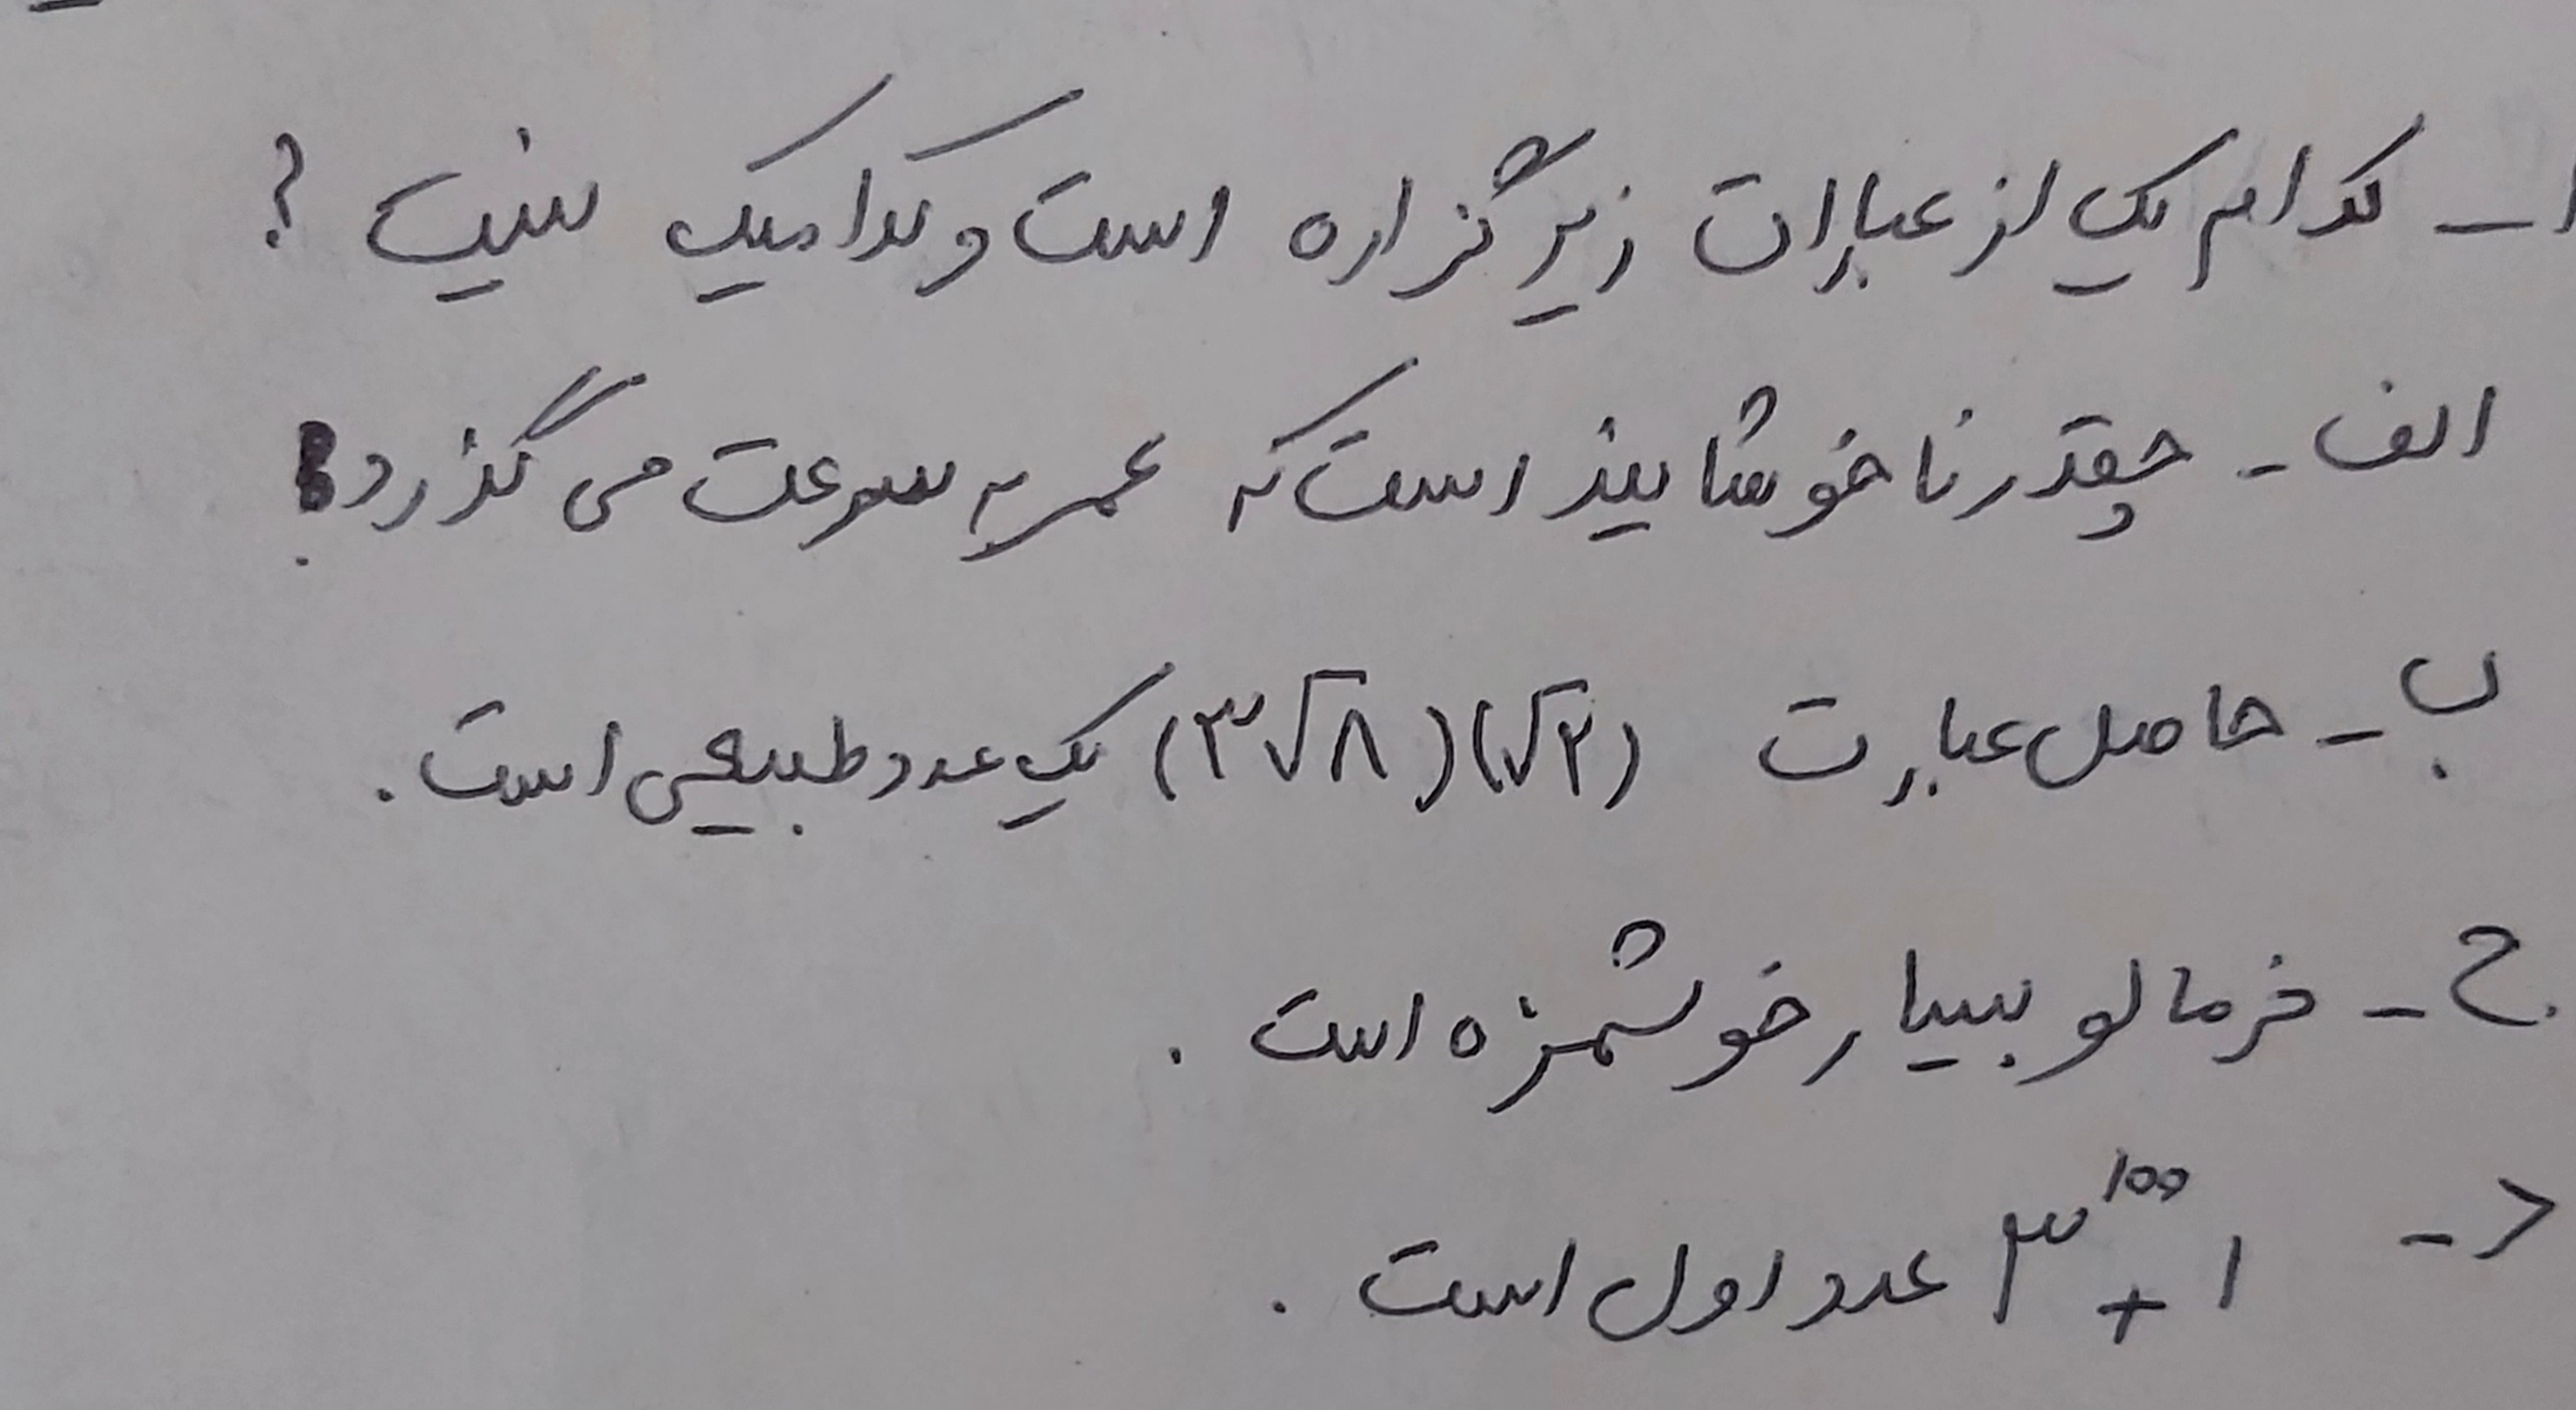 ۱- کدام یک از عبارات زیر گزاره است و کدامیک نیست ؟
الف- چقدر ناخوشایند است که عمر به سرعت می گذرد!
ب- حاصل عبارت (√۲)(۳√۸) یک عدد طبیعی است.
ج- خرمالو بسیار خوشمزه است .
د- ۳¹⁰⁰ + ۱ عدد اول است .